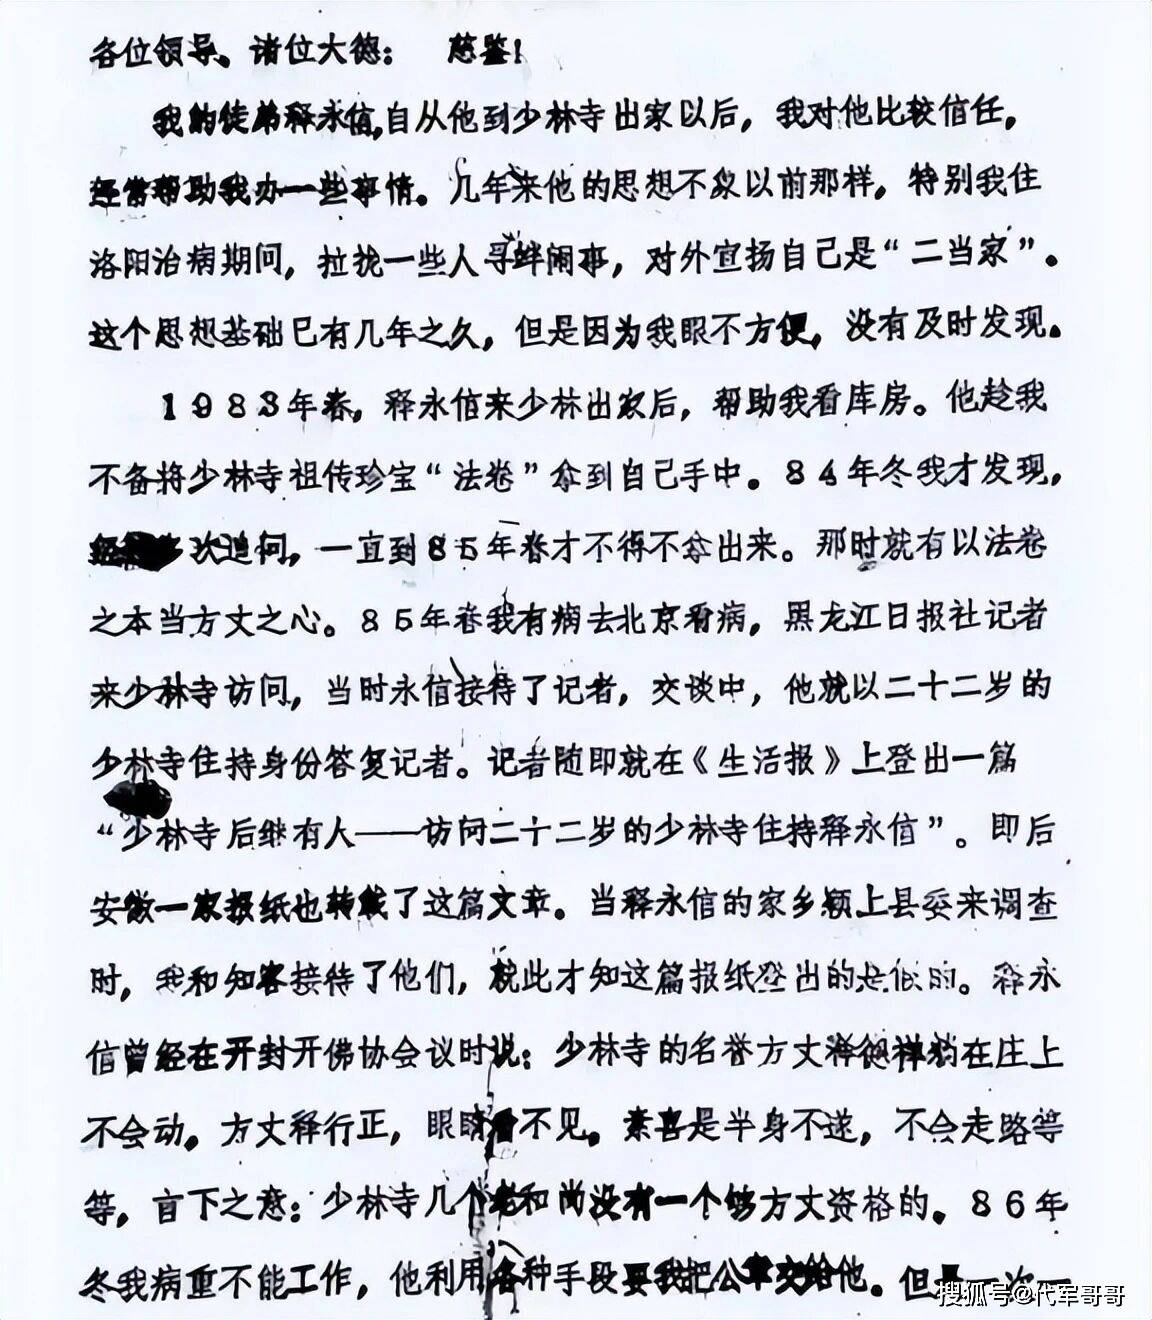 各位领导、诸位大德： 慈鉴！
我的徒弟释永信，自从他到少林寺出家以后，我对他比较信任，
经常帮助我办一些事情。几年来他的思想不象以前那样，特别我住
洛阳治病期问，拉拢一些人寻衅闹事，对外宣扬自己是“二当家”。
这个思想基础已有几年之久，但是因为我眼不方便，没有及时发现。
1983年春，释永信来少林出家后，帮助我看库房。他趁我
不备将少林寺祖传珍宝“法卷”拿到自己手中。84年冬我才发现，
次追问，一直到85年春才不得不拿出来。那时就有以法卷
之本当方丈之心。85年春我有病去北京看病，黑龙江日报社记者
来少林寺访问，当时永信接待了记者，交谈中，他就以二十二岁的
少林寺住持身份答复记者。记者随即就在《生活报》上登出一篇
“少林寺后继有人——访问二十二岁的少林寺住持释永信”。即后
安徽一家报纸也转载了这篇文章。当释永信的家乡颍上县委来调查
时，我和知客接待了他们，就此才知这篇报纸登出的是假的。释永
信曾经在开封开佛协会议时说：少林寺的名誉方丈释德禅躺在庄上
不会动。方丈释行正，眼睛看不见。素喜是半身不遂，不会走路等
等，言下之意：少林寺几个老和尚没有一个够方丈资格的。86年
冬我病重不能工作，他利用各种手段要我把公章交给他。但是一次一
搜狐号@代军哥哥